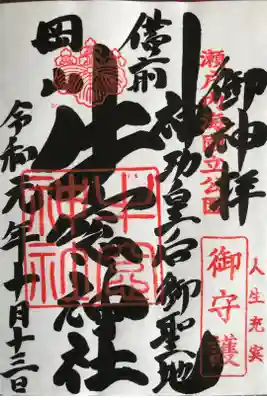 御神拝
瀬戸内海国立公園
神功皇后御聖地
備前
岡山
牛窓神社
令和元年十月十三日
牛窓
神社
御守護
人生充実